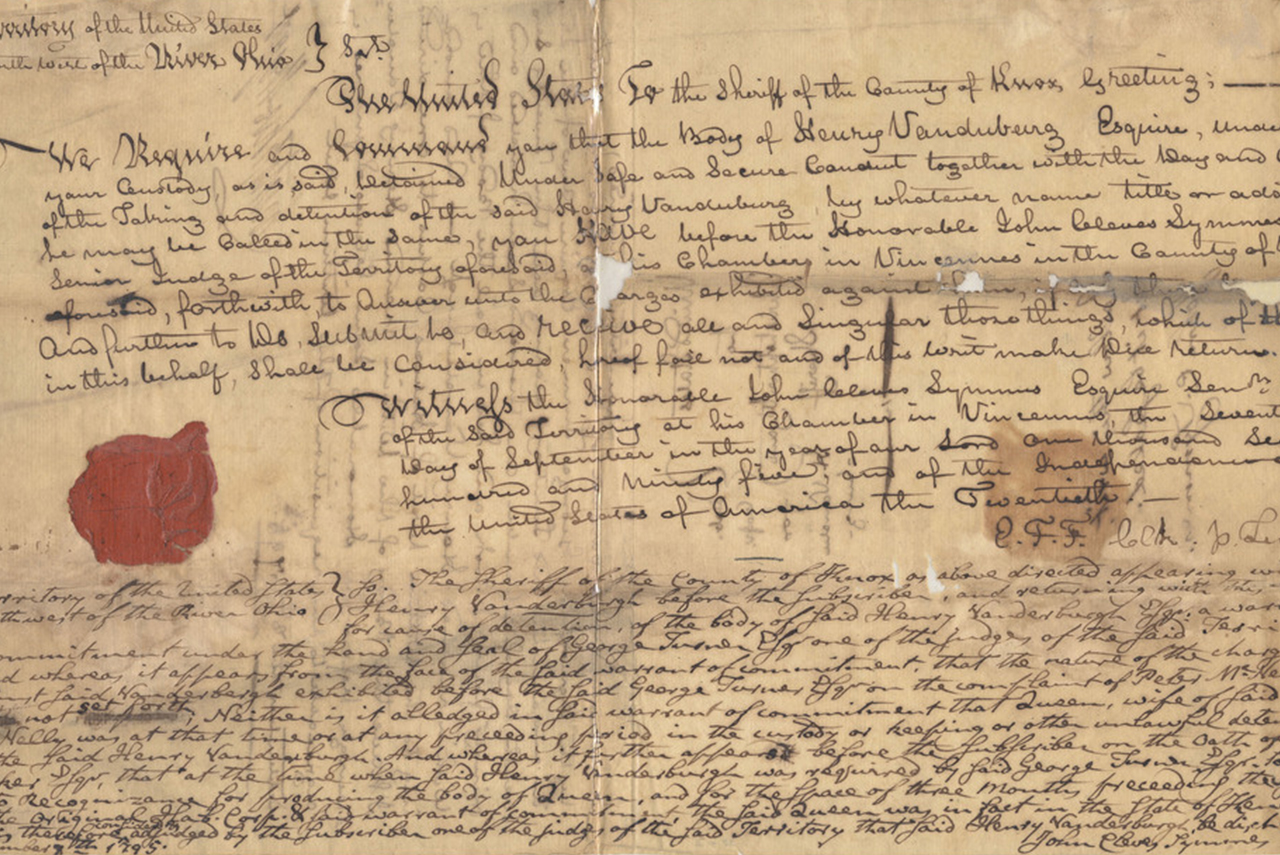 of the United States
west of the River Ohio } Sct.
The United States To the Sheriff of the County of Knox Greeting;
We Require and Command you that the Body of Henry Vanduburg Esquire, unde
your Custody, as is said, detained, Under Safe and Secure Conduct together with the Day and
of the Taking and detention of the said Henry Vanduburg by whatever name title or add
he may be Called in the Same, you Have before the Honorable John Cleves Symmes
Senior Judge of the Territory aforesaid, a his Chambers in Vincennes in the County of
aforesaid, forthwith, to Answer unto the arges exhibited against
And further to Do, Submit to, and receive all and Singular those things, which of
in this behalf, Shall be Considered, hereof fail not and of this writ make Due return.
Witness the Honorable John Cleves Symmes Esquire Senr.
of the Said Territory at his Chamber in Vincennes, the Sevent
Day of September in the year of our Lord one thousand Se
hundred and Ninety five and of the Independence
the United States of America the Twentieth. —
E. F. F. Clk. p.
rritory of the United States } Ss. The Sheriff of the County of Knox as above directed appearing
th west of the River Ohio } Henry Vanderburgh before the Subscriber, and returning with this
for cause of detention, of the body of said Henry Vanderburgh Esqr. a warr
ommitment under the hand and Seal of George Turner Esqr one of the judges of the Said Terri
d whereas it appears from the face of the Said warrant of commitment, that the nature of the charge
nst Said Vanderburgh exhibited before the Said George Turner Esqr on the complaint of Peter Mc. Ne
not set forth; Neither is it alledged in Said warrant of commitment that Queen, wife of Said
Nelly was at that time or at any preceeding period in the custody or keeping or other unlawful deten
the Said Henry Vanderburgh. And whereas it further appears before the Subscriber on the Oath of
Esqr. that at the time when Said Henry Vanderburgh was required by Said George Turner Esqr. to
Recognizance for producing the body of Queen, and for the Space of three Months preceeding the
the Original Habs. Corps. & Said warrant of commitment, the Said Queen was in fact in the State of Ken
is therefore adjudged by the Subscriber one of the judges of the Said Territory that Said Henry Vanderburgh, be disch
1795. John Cleves Symmes